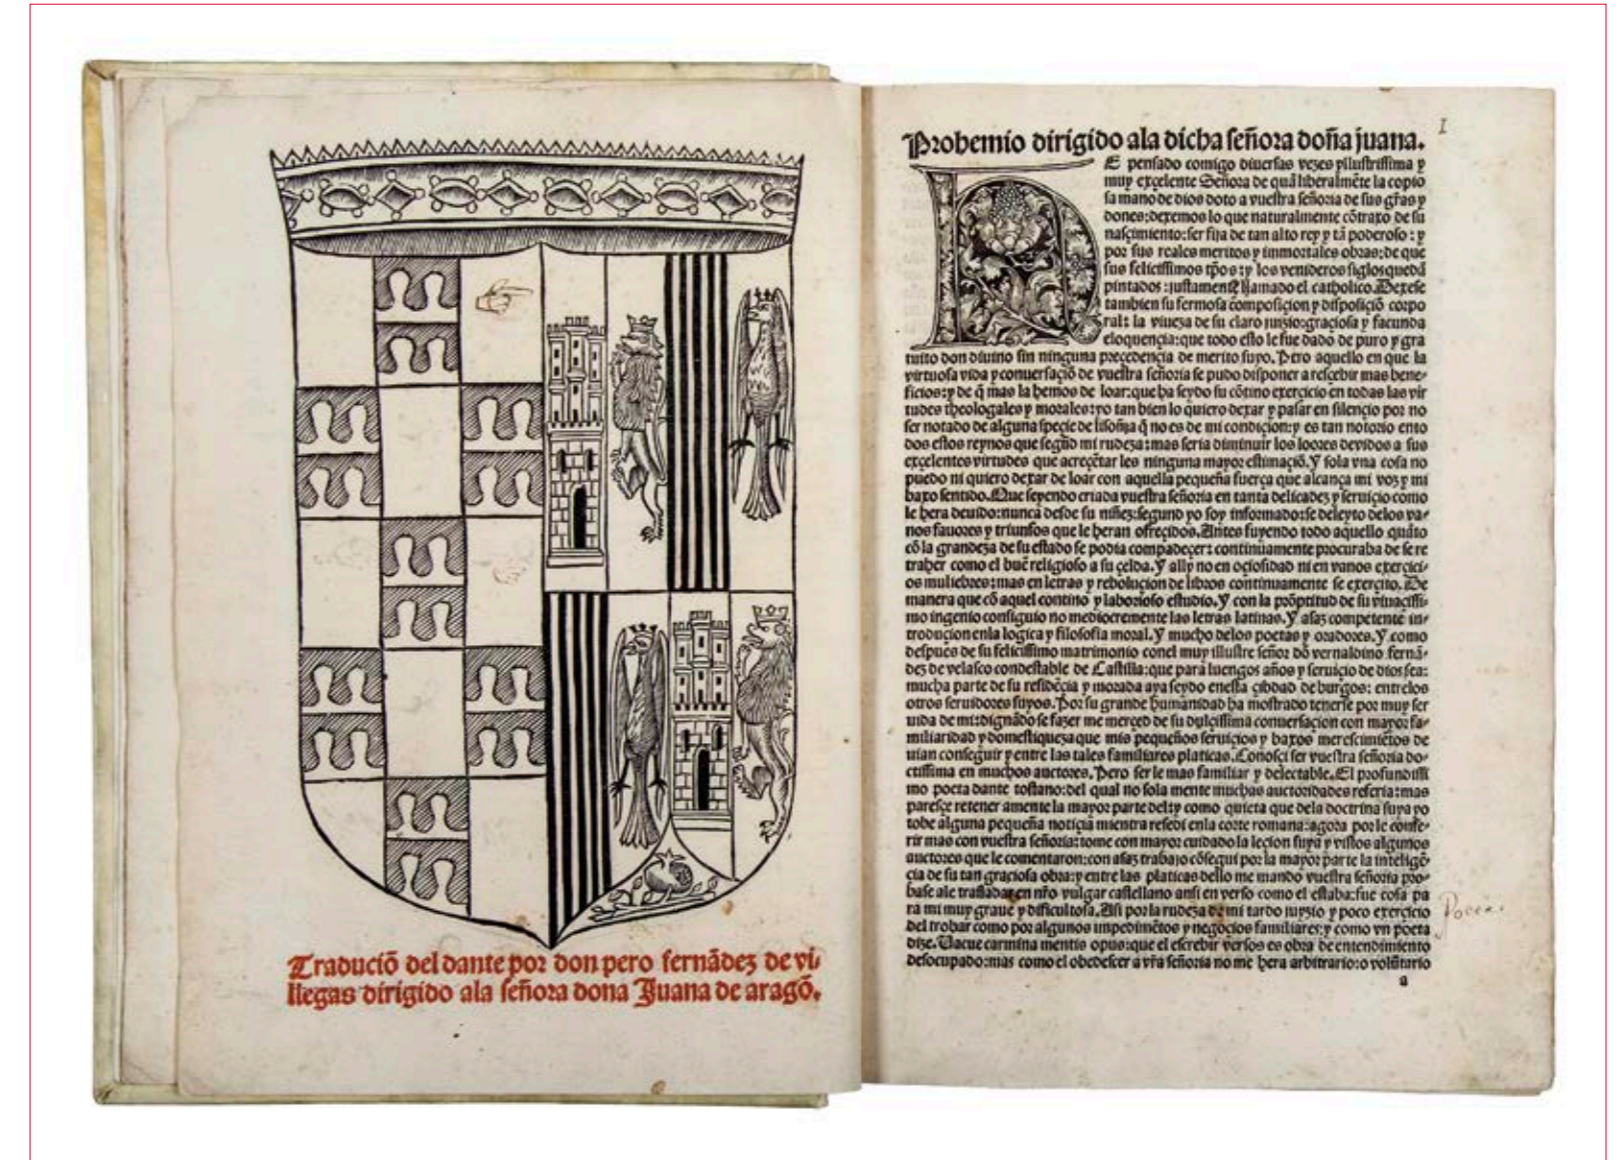 Traduciō del dante por don pero fernādez de vi-
llegas dirigido ala señora dona Juana de aragō.
I
Prohemio dirigido ala dicha señora doña juana.
HE pensado comigo diuersas vezes yllustrissima y
muy exçelente Señora de quā liberalmēte la copio
sa mano de dios doto a vuestra señoria de sus gr̃as y
dones: dexemos lo que naturalmente cōtraxo de su
nasçimiento: ser fija de tan alto rey y tā poderoso: y
por sus reales meritos y immortales obras: de que
sus felicissimos tp̄os: y los venideros siglos quedā
pintados: justamente llamado el catholico. Dexese
tambien su fermosa composiçion y disposiçiō corpo
ral: la viueza de su claro juyzio: graçiosa y facunda
eloquençia: que todo esto le fue dado de puro y gra
tuito don diuino sin ninguna preçedençia de merito suyo. Pero aquello en que la
virtuosa vida y conuersaçiō de vuestra señoria se pudo disponer a resçebir mas bene-
ficios: y de q̄ mas la hemos de loar: que ha seydo su cōtino exerçicio en todas las vir
tudes theologales y morales: yo tan bien lo quiero dexar y pasar en silençio por no
ser notado de alguna speçie de lisonja q̄ no es de mi condiçion: y es tan notorio en to
dos estos reynos que segūd mi rudeza: mas seria diminuir los loores devidos a sus
exçelentes virtudes que acreçētar les ninguna mayor estimaçiō. Y sola vna cosa no
puedo ni quiero dexar de loar con aquella pequeña fuerça que alcança mi voz y mi
baxo sentido. Que seyendo criada vuestra señoria en tanta delicadez y seruiçio como
le hera deuido: nunca desde su niñez: segund yo soy informado: se deleyto delos va-
nos fauores y triunfos que le heran ofreçidos. Antes fuyendo todo aquello quāto
cō la grandeza de su estado se podia compadeçer: continuamente procuraba de se re
traher como el buē religioso a su çelda. Y ally no en oçiosidad ni en vanos exerçici-
os muliebres: mas en letras y reboluçion de libros continuamente se exerçito. De
manera que cō aquel contino y laborioso estudio. Y con la prōptitud de su viuaçissi-
mo ingenio consiguio no mediocremente las letras latinas. Y asaz competente in-
troduçion enla logica y filosofia moral. Y mucho delos poetas y oradores. Y como
despues de su feliçissimo matrimonio conel muy illustre señor dō vernaldino fernā-
dez de velasco condestable de Castilla: que para luengos años y seruiçio de dios sea:
mucha parte de su residēçia y morada aya seydo enesta çibdad de burgos: entrelos
otros seruidores suyos. Por su grande humanidad ha mostrado tenerse por muy ser
uida de mi: dignādo se fazer me merçed de su dulçissima conuersaçion con mayor fa-
miliaridad y domestiqueza que mis pequeños seruiçios y baxos meresçimiētos de
uian conseguir y entre las tales familiares platicas. Conosçi ser vuestra señoria do-
ctissima en muchos auctores. Pero ser le mas familiar y delectable. El profundissi
mo poeta dante tostano: del qual no sola mente muchas auctoridades referia: mas
paresçe retener a mente la mayor parte del: y como quiera que dela doctrina suya yo
tobe alguna pequeña notiçia mientra resedi enla corte romana: agora por le confe-
rir mas con vuestra señoria: tome con mayor cuidado la leçion suya y vistos algunos
auctores que le comentaron: con asaz trabajo cōsegui por la mayor parte la inteligē-
çia de su tan graçiosa obra: y entre las platicas dello me mando vuestra señoria pro-
base ale trasladar en nr̃o vulgar castellano ansi en verso como el estaba: fue cosa pa
ra mi muy graue y dificultosa. Asi por la rudeza de mi tardo juyzio y poco exerçicio
del trobar como por algunos impedimētos y negoçios familiares: y como vn poeta
dize. Uacue carmina mentis opus: que el escrebir versos es obra de entendimiento
desocupado: mas como el obedesçer a vr̃a señoria no me hera arbitrario: o volūtario
a